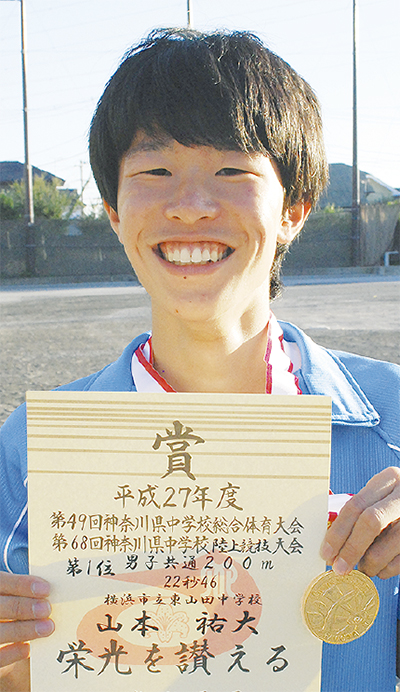 賞
平成27年度
第49回神奈川県中学校総合体育大会
第68回神奈川県中学校陸上競技大会
第1位 男子共通200m
22秒46
横浜市立東山田中学校
山本 祐大
栄光を讃える